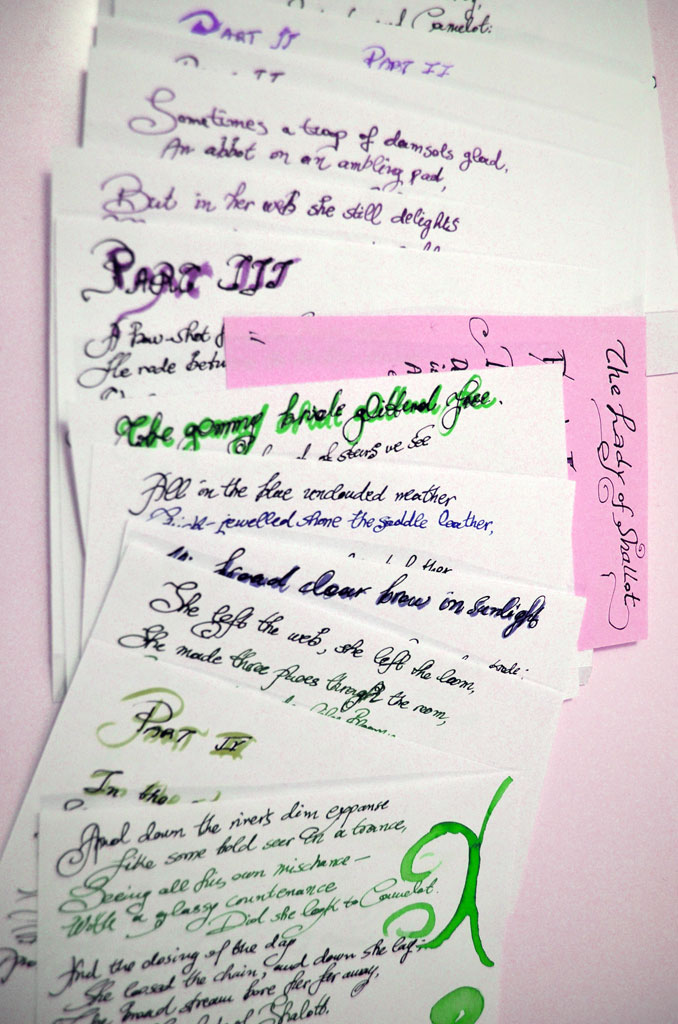 Camelot.
PART II
PART II
Sometimes a troop of damsels glad,
An abbot on an ambling pad,
But in her web she still delights
PART III
A Bow-shot
He rode betw
The Lady of Shallot
The gemmy bridle glitter'd free.
stars we see
All in the blue unclouded weather
jewelled shone the saddle leather,
broad clear brow in sunlight
She left the web, she left the loom,
She made three paces through the room,
PART IV
In the
And down the river's dim expanse
Like some bold seer in a trance,
Seeing all his own mischance—
With a glassy countenance
Did she look to Camelot.
And the closing of the day
She loosed the chain, and down she lay;
The broad stream bore her far away,
Shalott.